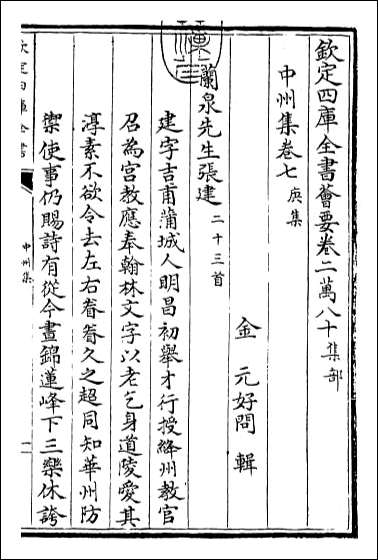 欽定四庫全書薈要卷二萬八十集部
中州集卷七 庚集
金 元好問 輯
蘭泉先生張建 二十三首
建字吉甫蒲城人明昌初舉才行授絳州教官
召為宮教應奉翰林文字以老乞身道陵愛其
淳素不欲令去左右眷眷久之超同知華州防
禦使事仍賜詩有從今晝錦蓮峰下三樂休誇
欽定四庫全書
中州集
一